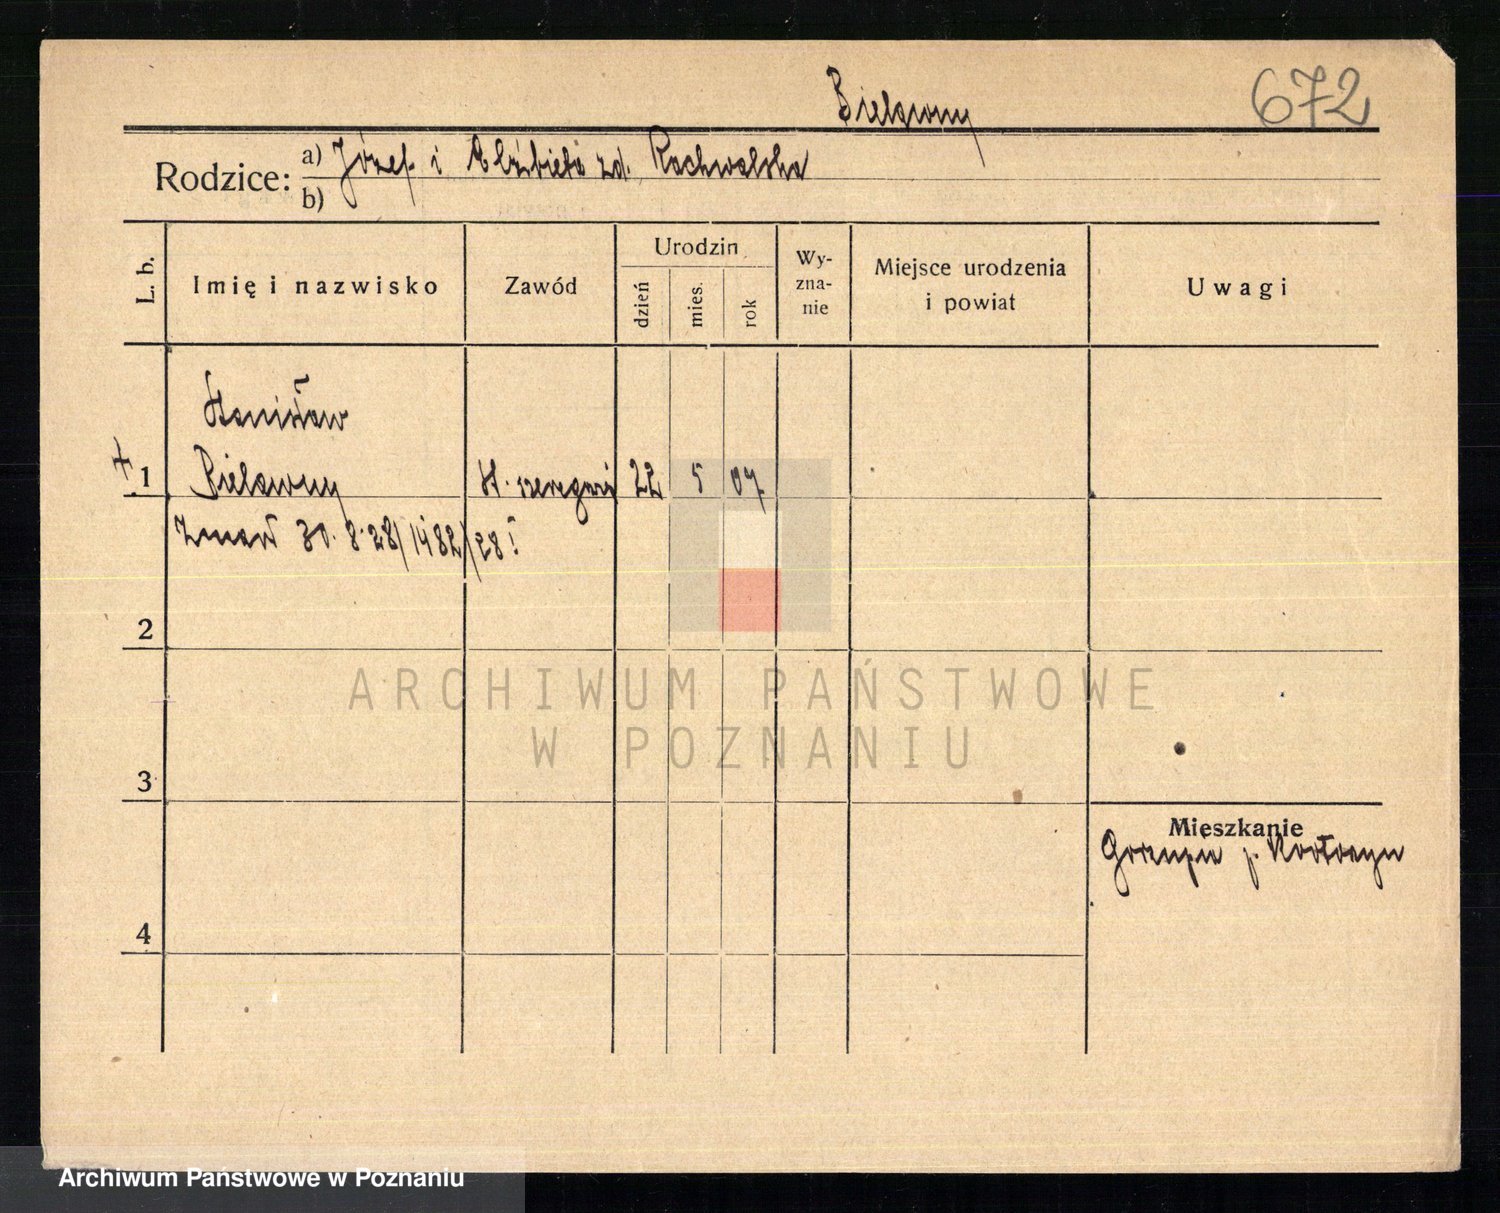 Bielawny 672
Rodzice: a) Józef i Elżbieta zd. Rachwalska
b)
L. b. Imię i nazwisko Zawód Urodzin dzień mies. rok Wy-zna-nie Miejsce urodzenia i powiat Uwagi
Stanisław
+ 1 Bielawny st. szeregowi 22 5 07
Zmarł 30. 8. 28/1482/28!
2
ARCHIWUM PAŃSTWOWE
W POZNANIU
3
Mieszkanie
4
Archiwum Państwowe w Poznaniu